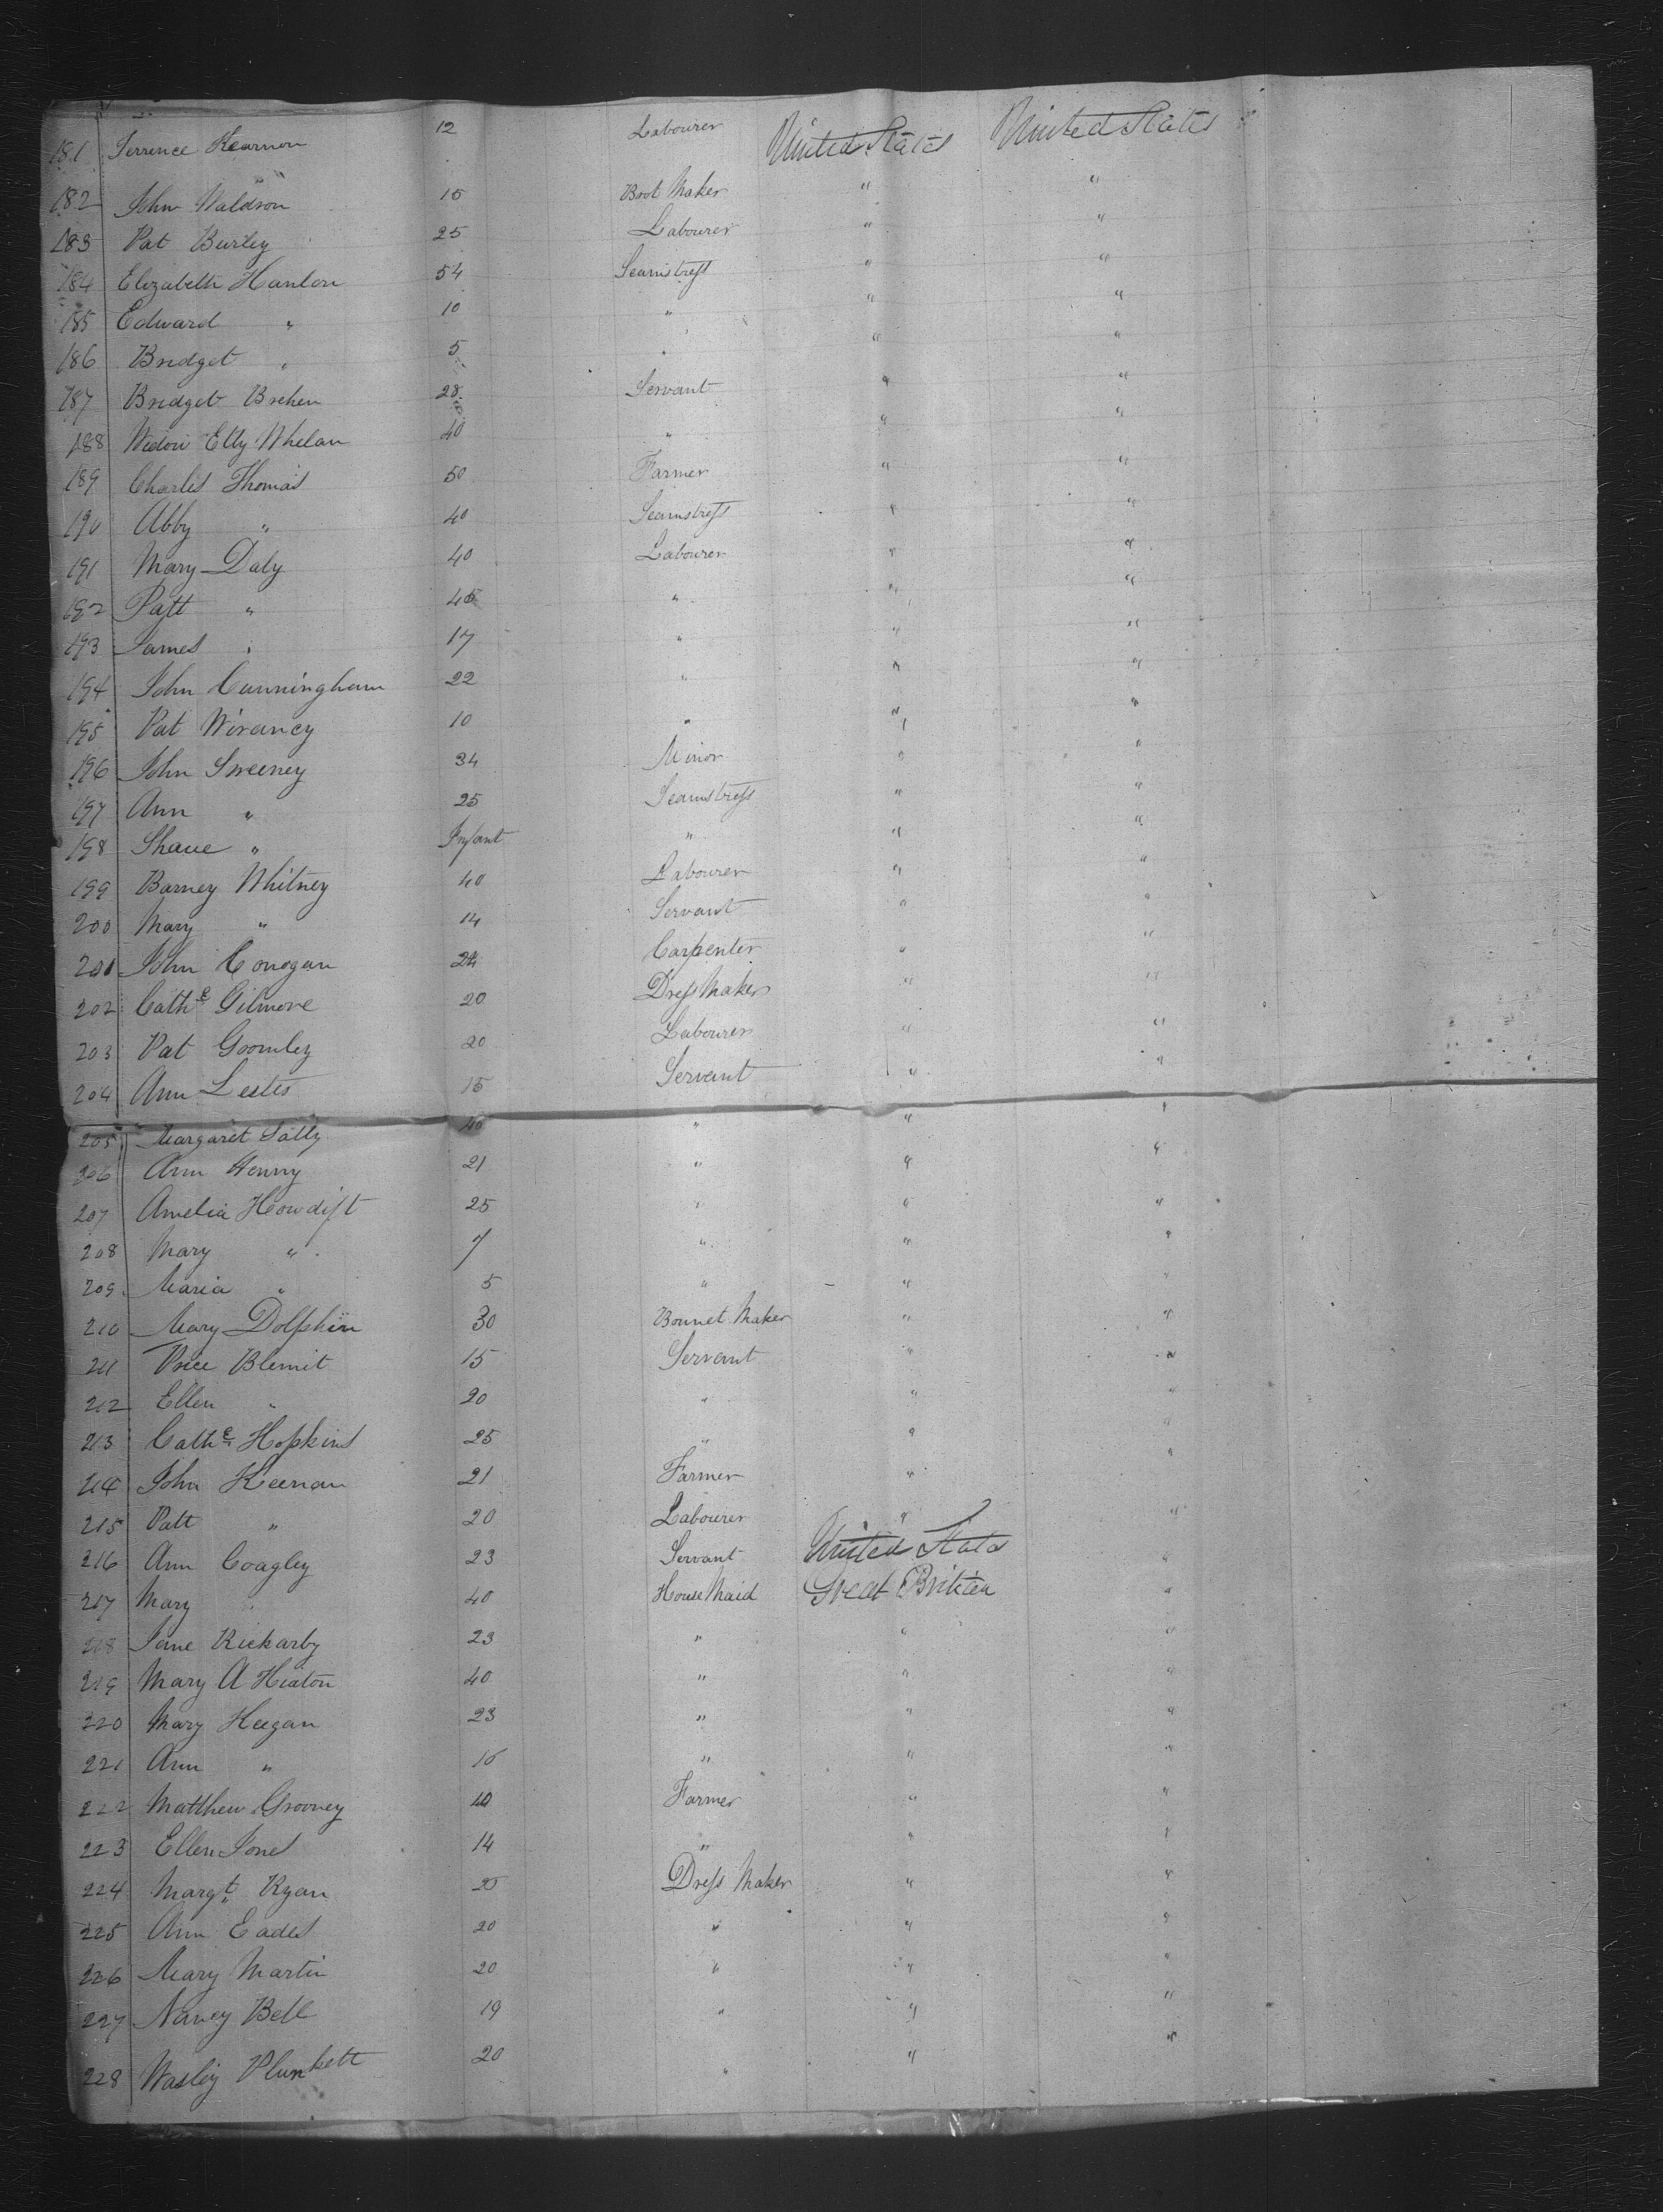 181 Terrence Kearnon 12 Labourer United States United States
182 John Waldron 15 Boot Maker " "
183 Pat Burley 25 Labourer " "
184 Elizabeth Hanlon 54 Seamstress " "
185 Edward " 10 " " "
186 Bridget " 5 " " "
187 Bridget Brehen 28 Servant " "
188 Widow Etty Whelan 40 " " "
189 Charles Thomas 50 Farmer " "
190 Abby " 40 Seamstress " "
191 Mary Daly 40 Labourer " "
192 Patt " 45 " " "
193 James " 17 " " "
194 John Cunningham 22 " " "
195 Pat Wirancy 10 " " "
196 John Sweeney 34 Minor " "
197 Ann " 25 Seamstress " "
198 Shaue " Infant " " "
199 Barney Whitney 40 Labourer " "
200 Mary " 14 Servant " "
201 John Conogan 24 Carpenter " "
202 Cathe Gilmore 20 Dress Maker " "
203 Pat Goomley 20 Labourer " "
204 Ann Lestes 15 Servant " "
205 Margaret Sally 40 " " "
206 Ann Henny 21 " " "
207 Amelia Howdift 25 " " "
208 Mary " 7 " " "
209 Maria " 5 " " "
210 Mary Dolphin 30 Bonnet Maker " "
211 Price Blemit 15 Servant " "
212 Ellen " 20 " " "
213 Cathe Hopkins 25 " " "
214 John Keenan 21 Farmer " "
215 Patt " 20 Labourer " "
216 Ann Coagley 23 Servant United States "
217 Mary " 40 House Maid Great Britian "
218 Jane Rickarby 23 " " "
219 Mary A Heaton 40 " " "
220 Mary Keegan 23 " " "
221 Ann " 16 " " "
222 Matthew Grooney 40 Farmer " "
223 Ellen Jones 14 " " "
224 Margt Ryan 25 Dress Maker " "
225 Ann Eades 20 " " "
226 Mary Martin 20 " " "
227 Nancy Bell 19 " " "
228 Wasley Plunkett 20 " " "